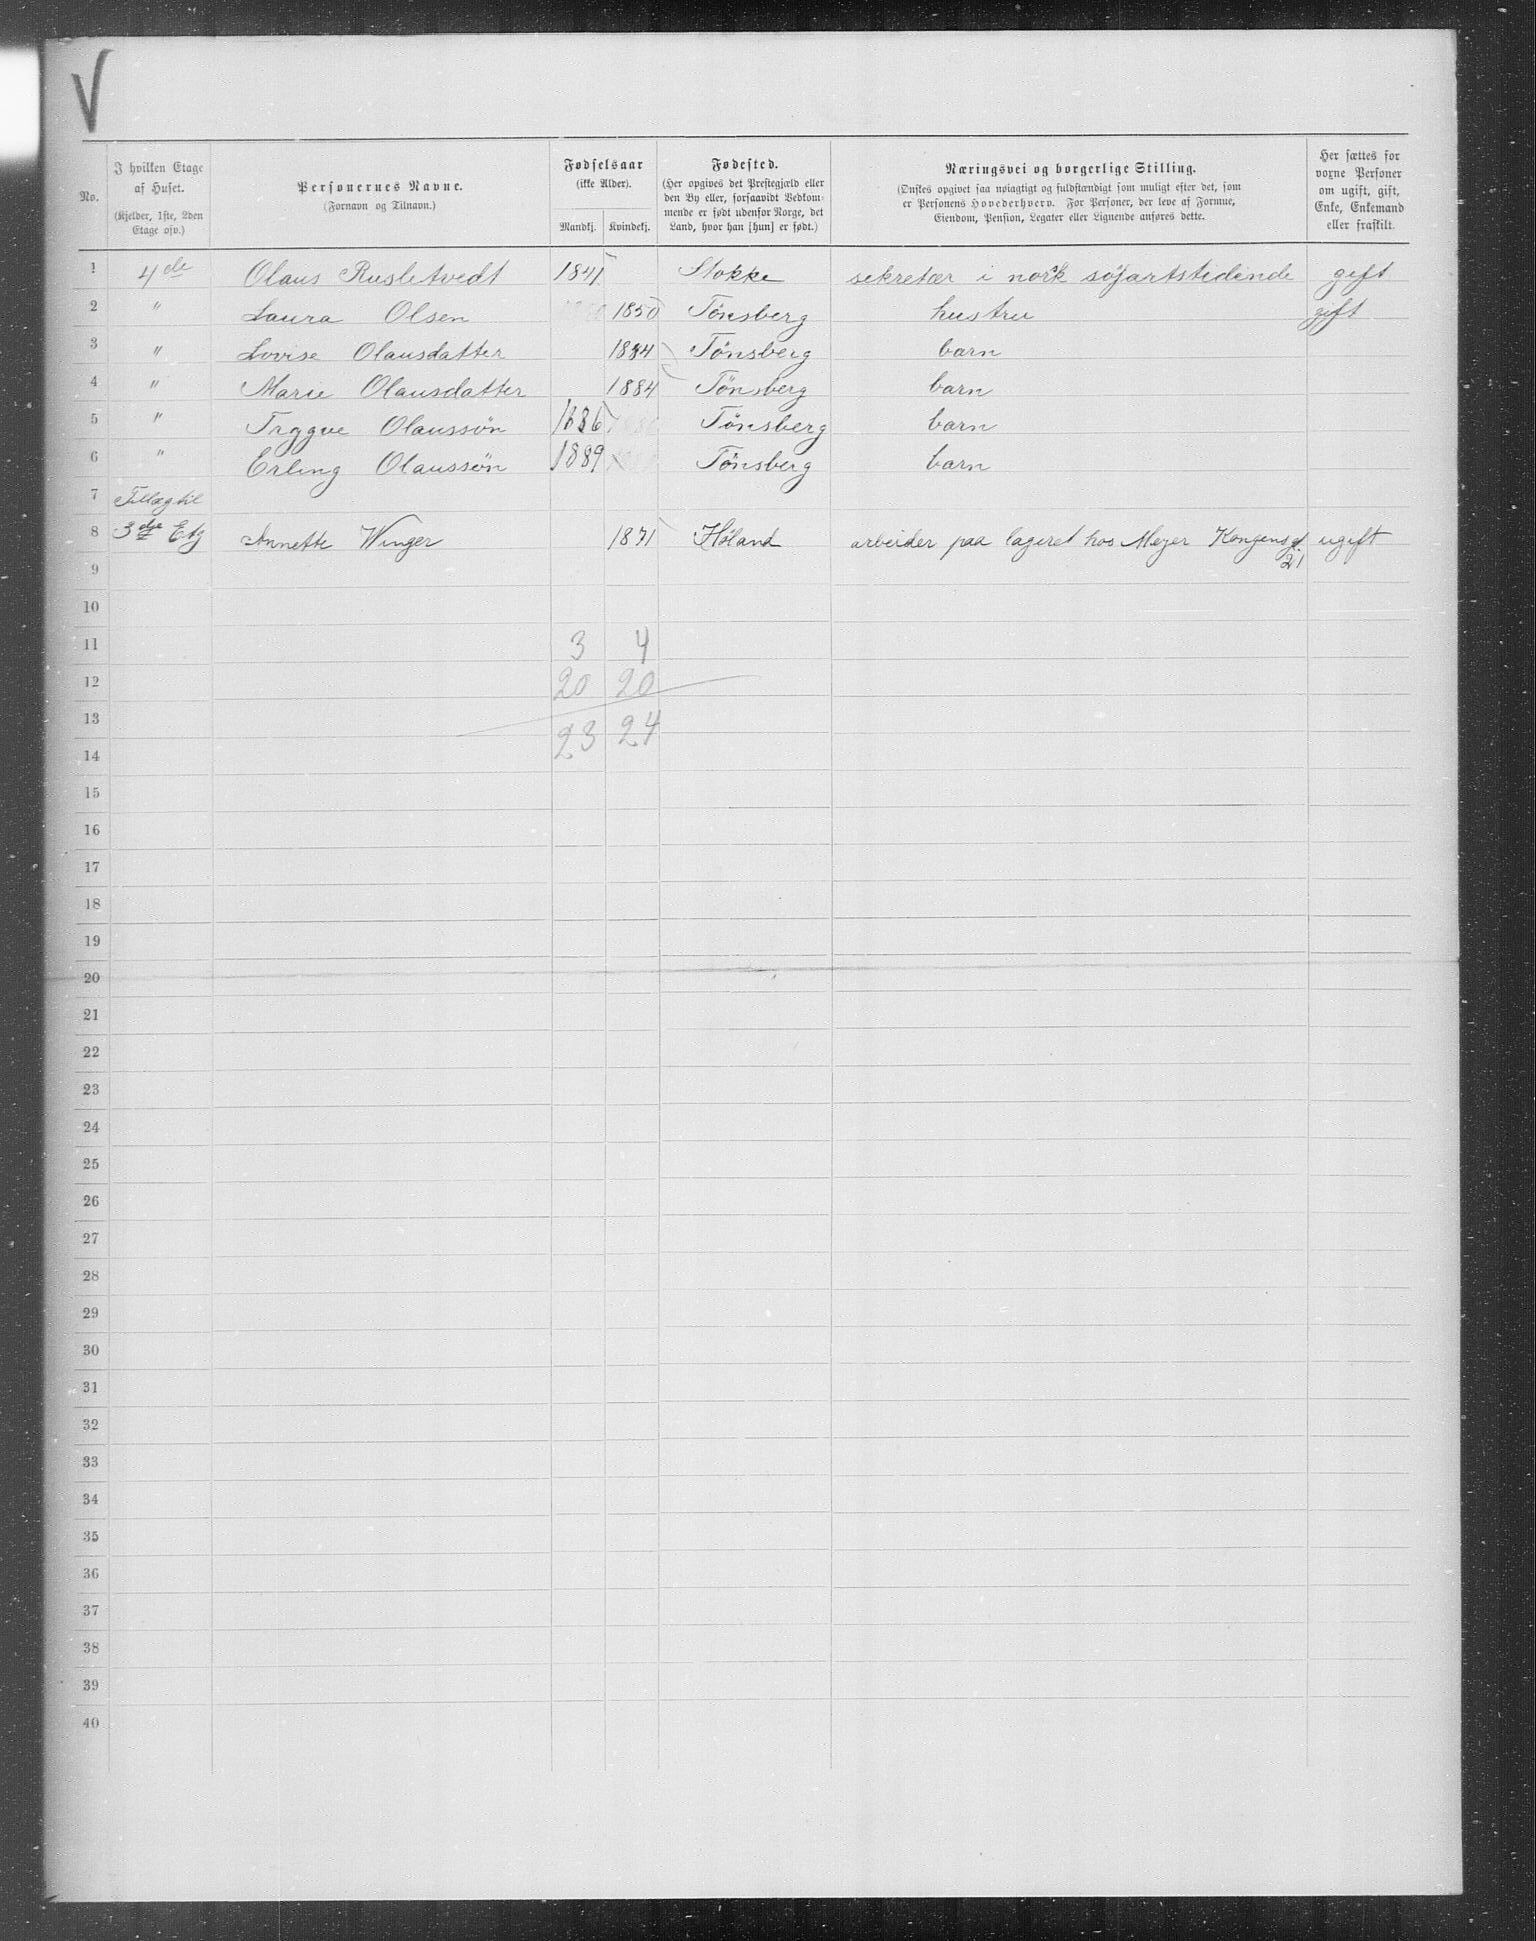 V
No.
I hvilken Etage
af Huset.
(Kjelder, 1ste, 2den
Etage osv.)
Personernes Navne.
(Fornavn og Tilnavn.)
Fødselsaar
(ikke Alder).
Mandkj. Kvindekj.
Fødested.
(Her opgives det Prestegjæld eller
den By eller, forsaavidt Vedkom-
mende er født udenfor Norge, det
Land, hvor han [hun] er født.)
Næringsvei og borgerlige Stilling.
(Ønskes opgivet saa nøiagtigt og fuldstændigt som muligt efter det, som
er Personens Hovederhverv. For Personer, der leve af Formue,
Eiendom, Pension, Legater eller Lignende anføres dette.
Her sættes for
voxne Personer
om ugift, gift,
Enke, Enkemand
eller fraskilt.
1 4de Olaus Rusletvedt 1841 Stokke sekretær i norsk söfartstidende gift
2 " Laura Olsen 1850 Tönsberg hustru gift
3 " Lovise Olausdatter 1884 Tönsberg barn
4 " Marie Olausdatter 1884 Tönsberg barn
5 " Trygve Olaussön 1886 Tönsberg barn
6 " Erling Olaussön 1889 Tönsberg barn
7 Tillæg til
8 3dje Etg Annette Winger 1871 Høland arbeider paa lageret hos Meyer Kongensgt ugift
9 21
10
11 3 4
12 20 20
13 23 24
14
15
16
17
18
19
20
21
22
23
24
25
26
27
28
29
30
31
32
33
34
35
36
37
38
39
40